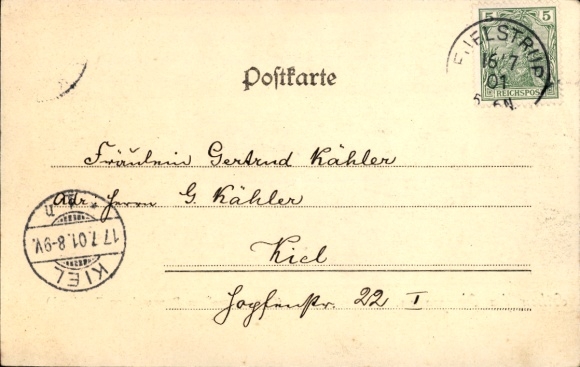 5 5
REICHSPOST
FJELSTRUP
16/7
01
5-6N.
Postkarte
Fräulein Gertrud Kähler
Adr. Herrn G. Kähler
Kiel
Hopfenstr. 22 I
KIEL
17.7.01.8-9V.